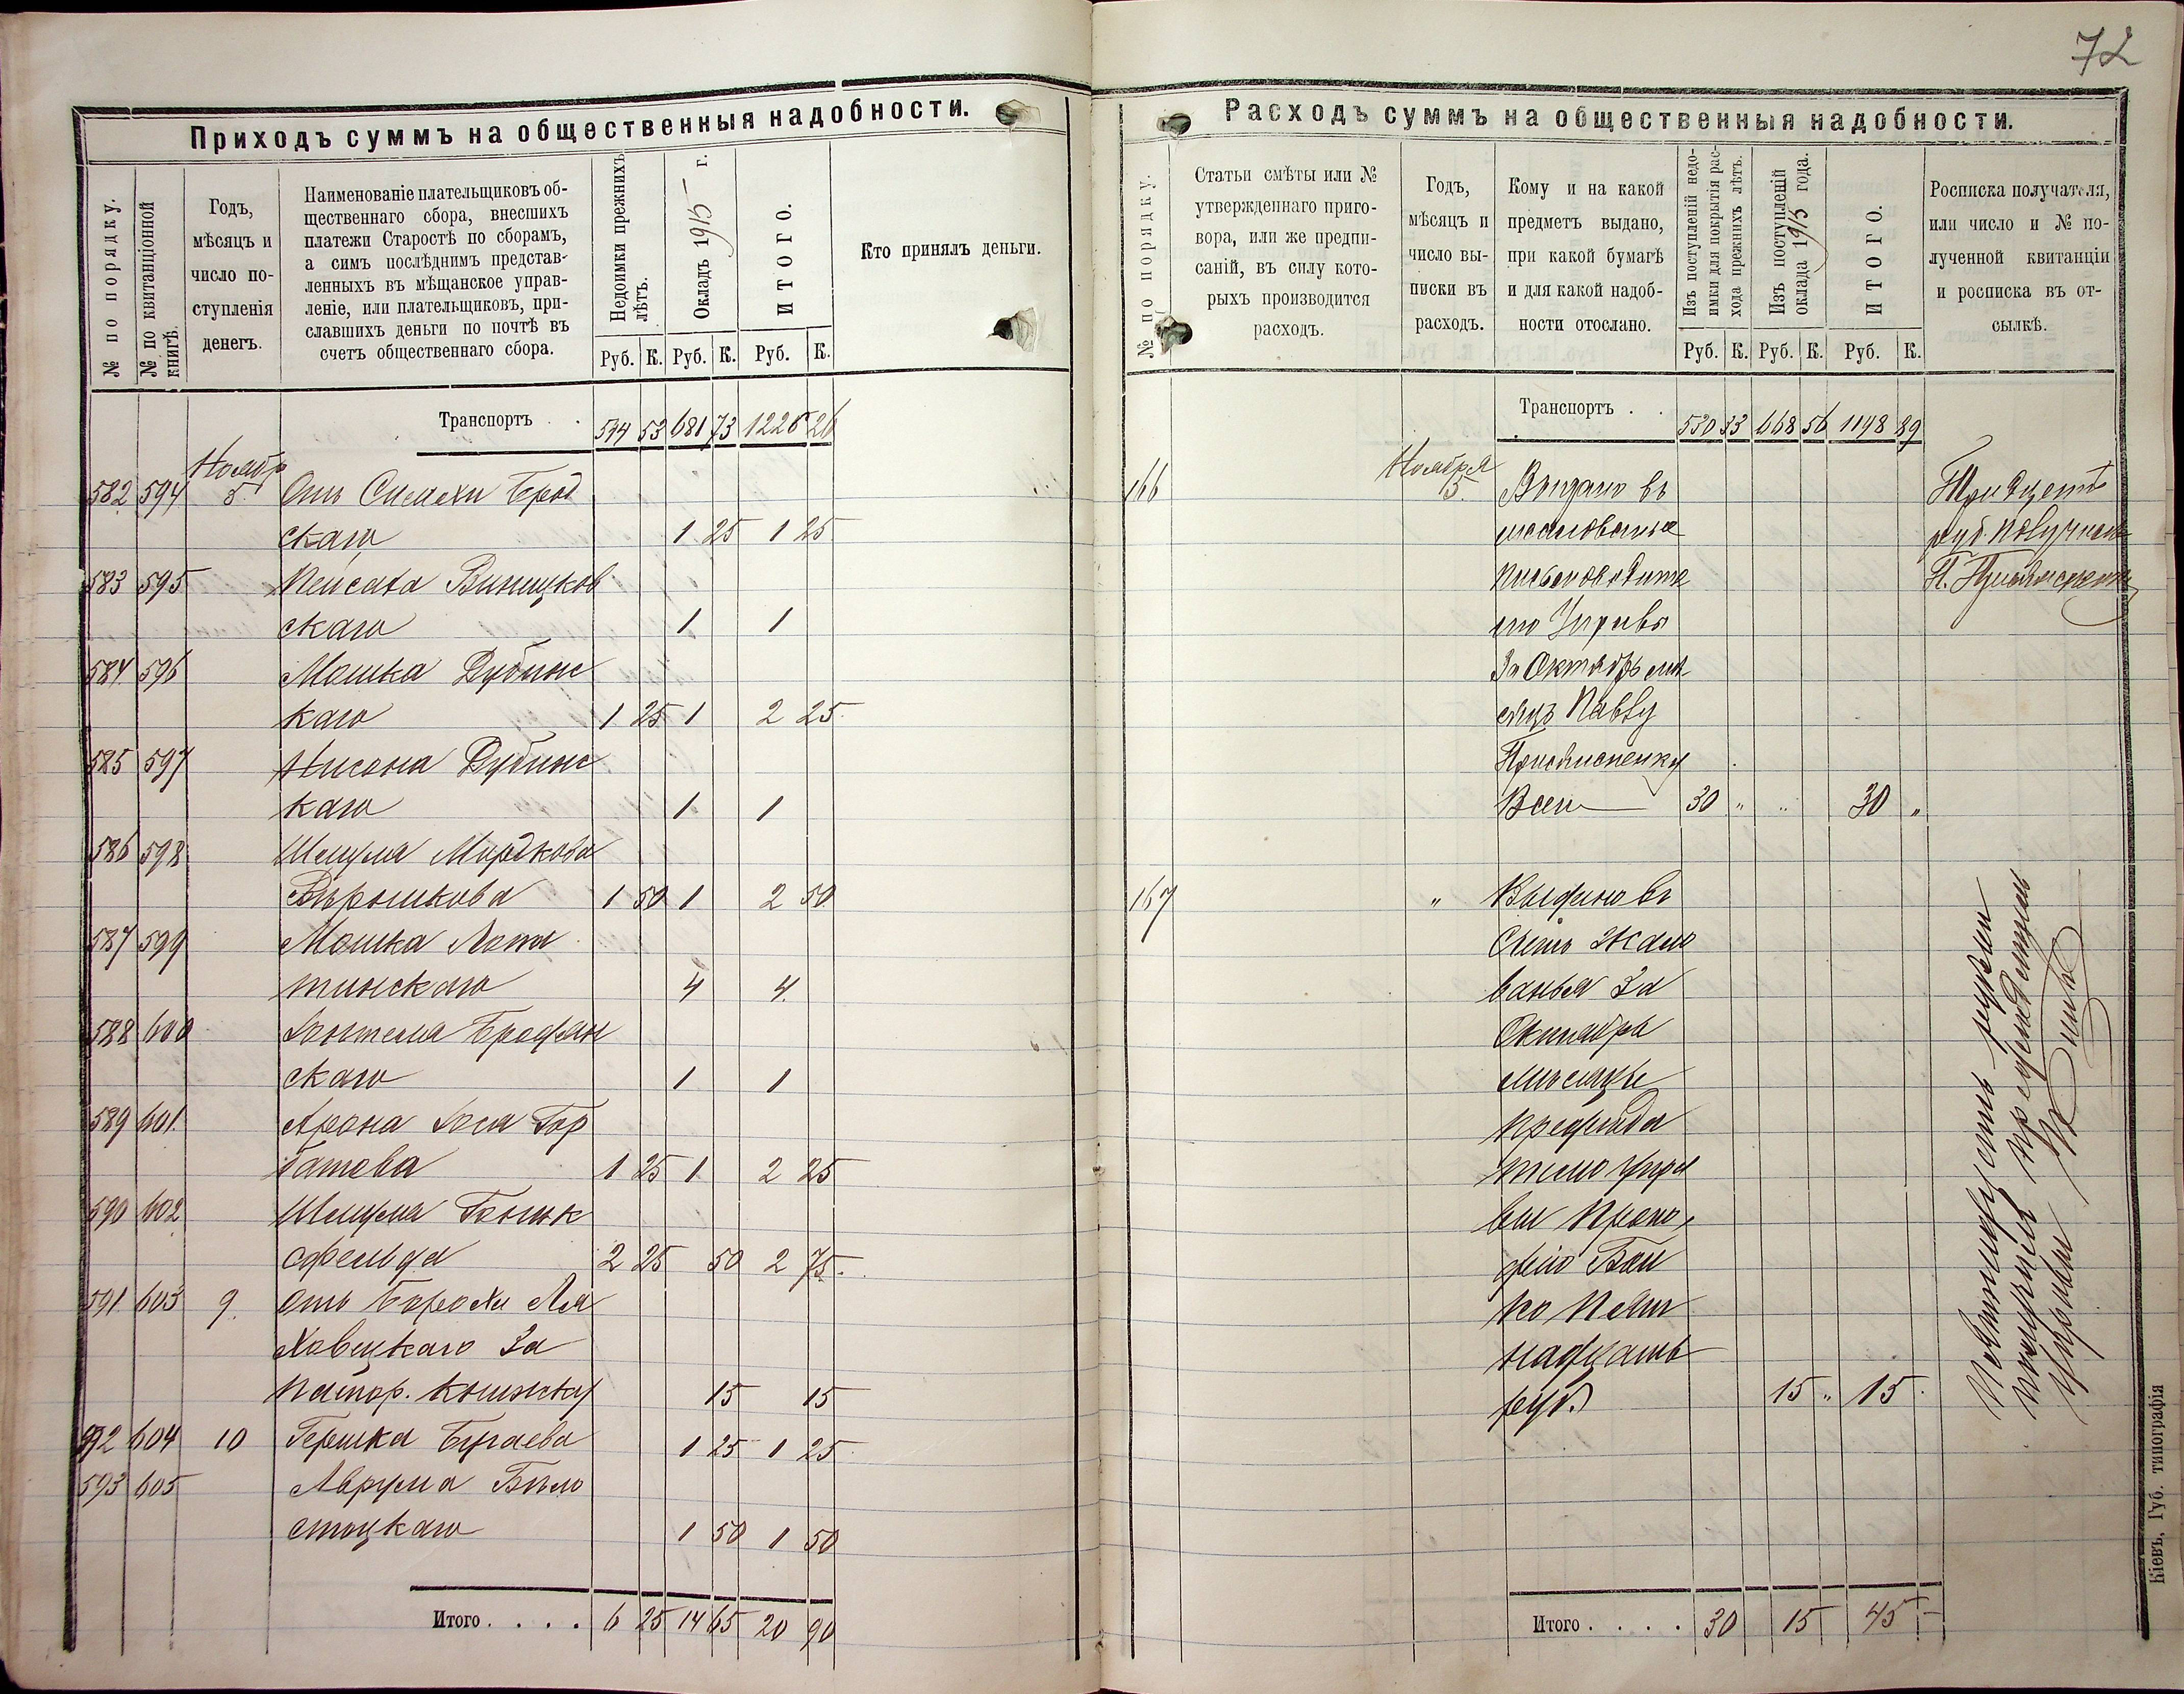 72
Приходъ суммъ на общественныя надобности.
№ по порядку.
№ по квитанціонной
книгѣ.
Годъ,
мѣсяцъ и
число по-
ступленія
денегъ.
Наименованіе плательщиковъ об-
щественнаго сбора, внесшихъ
платежи Старостѣ по сборамъ,
а симъ послѣднимъ представ-
ленныхъ въ мѣщанское управ-
леніе, или плательщиковъ, при-
славшихъ деньги по почтѣ въ
счетъ общественнаго сбора.
Недоимки прежнихъ
лѣтъ.
Окладъ 1915 г.
ИТОГО.
Кто принялъ деньги.
Руб. К. Руб. К. Руб. К.
Транспортъ . . 544 53 681 73 1226 26
Ноябр
582 594 5. Отъ Симахи Брод
скаго 1 25 1 25
583 595 Пейсаха Виницков
скаго 1 1
584 596 Мошка Дубинс
каго 1 25 1 2 25
585 597 Нисона Дубинс
каго 1 1
586 598 Шмуля Мордкова
1 50 1 2 50
587 599 Мошка
тинскаго 4 4
588 600
скаго 1 1
589 601 Арона Гор
батова 1 25 1 2 25
590 602 Шмуля
сфельда 2 25 50 2 75
591 603 9. Отъ Ля
ховецкаго За
Паспор. книжку 15 15
592 604 10 Гершка Бугаева 1 25 1 25
593 605 Аврума Бѣло
стоцкаго 1 50 1 50
Итого . . . . 6 25 14 65 20 90
Расходъ суммъ на общественныя надобности.
№ по порядку.
Статьи смѣты или №
утвержденнаго приго-
вора, или же предпи-
саній, въ силу кото-
рыхъ производится
расходъ.
Годъ,
мѣсяцъ и
число вы-
писки въ
расходъ.
Кому и на какой
предметъ выдано,
при какой бумагѣ
и для какой надоб-
ности отослано.
Изъ поступленій недо-
имки для покрытія рас-
хода прежнихъ лѣтъ.
Изъ поступленій
оклада 1915 года.
ИТОГО.
Росписка получателя,
или число и № по-
лученной квитанціи
и росписка въ от-
сылкѣ.
Руб. К. Руб. К. Руб. К.
Транспортъ . . 530 33 668 56 1198 89
Ноября
166 5. Выдано въ
жалованье
письмоводите
лю Управы
За Октябрь мѣ
сяцъ Павлу
Присвисненку
Всего 30 " " 30 "
Тридцать
руб. получилъ
П.
167 " Выдано въ
Счетъ жало
ванья За
Октябрь
мѣсяцъ
предсѣда
телю Упра
вы
фію Бой
ко Пят
надцать
руб. 15 " 15
Пятнадцать рублей
получилъ предсѣдатель
Управы Бойко
Итого . . . . 30 15 45 -
Кіевъ, Губ. типографія